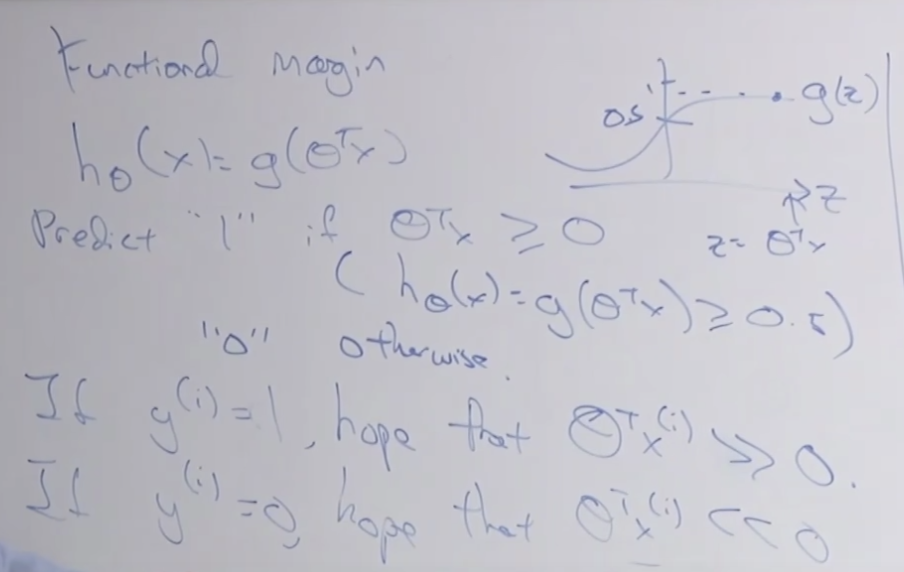 Functional margin
1 g(z)
0.5
h_θ(x) = g(θᵀx)
z
Predict "1" if θᵀx ≥ 0
z = θᵀx
(h_θ(x) = g(θᵀx) ≥ 0.5)
"0" otherwise.
If y⁽ⁱ⁾ = 1, hope that θᵀx⁽ⁱ⁾ ≫ 0.
If y⁽ⁱ⁾ = 0, hope that θᵀx⁽ⁱ⁾ << 0